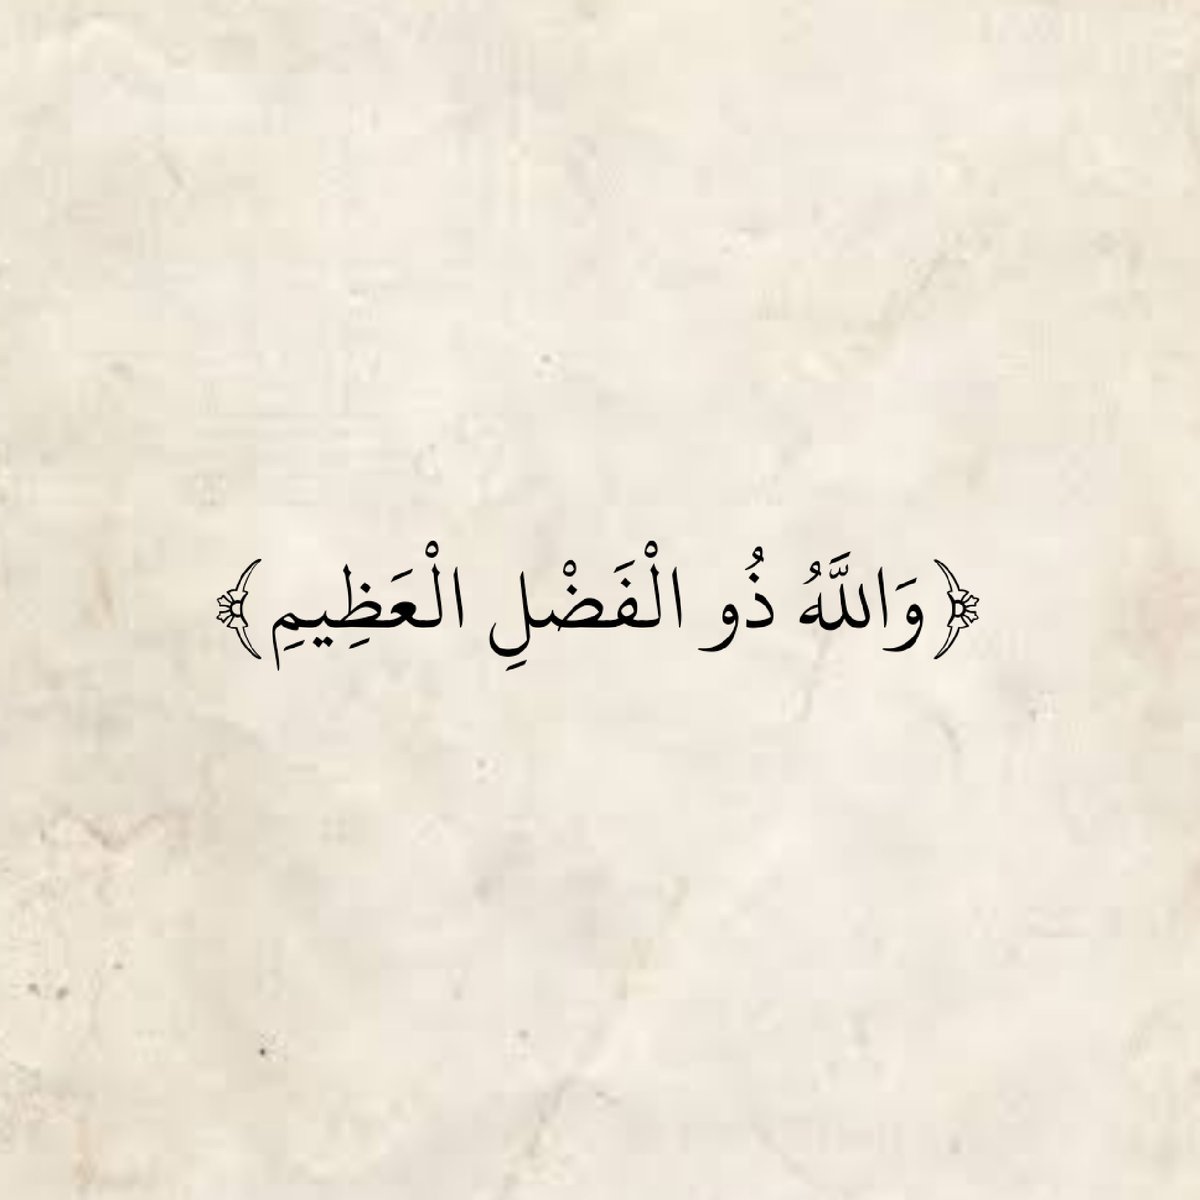 ﴿وَاللَّهُ ذُو الْفَضْلِ الْعَظِيمِ﴾